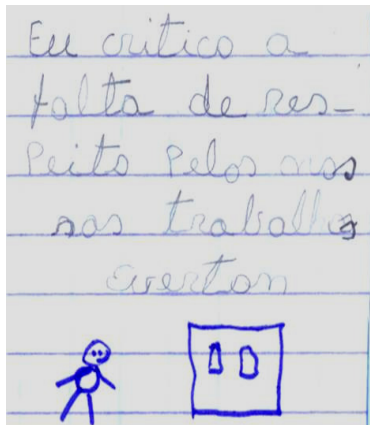 Eu critico a
falta de res-
peito pelos nos
sos trabalhos
Everton